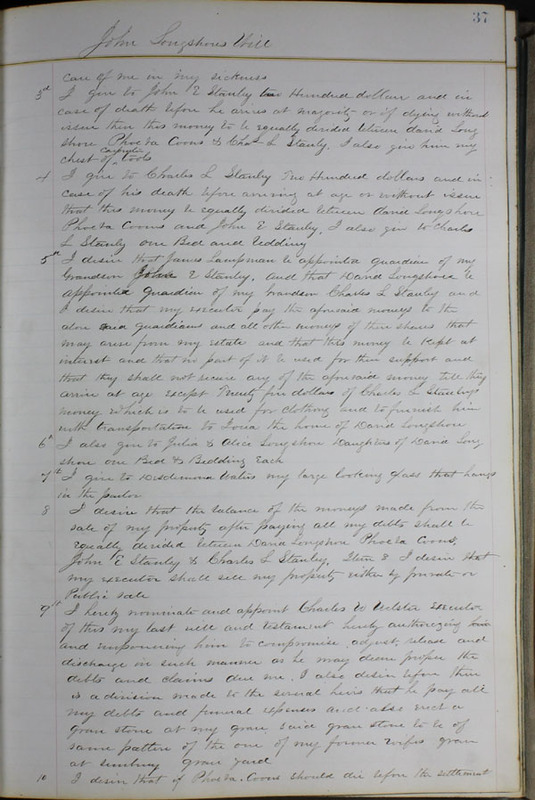 37
John Longshores Will
care of me in my sickness
3rd I give to John E Stanley two Hundred dollars and in
case of death before he arives at majority or of dying without
issue then this money to be equally divided between David Long
shore Phoeba Coons & Chas L Stanly. I also give him my
chest of carpenter tools
4 I give to Charles L Stanley Two Hundred dollars and in
case of his death before arriving at age or without issue
that this money be equally divided between David Longshore
Phoeba Coons and John E Stanly. I also give to Charles
L Stanly one Bed and Bedding
5th I desire that James Lampman be appointed guardian of my
Grandson John E Stanley, and that David Longshore be
appointed guardian of my Grandson Charles L Stanley and
I desire that my executor pay the aforesaid moneys to the
above said guardians and all other moneys of their shares that
may arise from my estate and that this money be kept at
interest and that no part of it be used for their support and
that they shall not receive any of the aforesaid money till they
arrive at age except Twenty five dollars of Charles L Stanleys
money which is to be used for clothing and to furnish him
with transportation to Iowa the home of David Longshore
6th I also give to Julia & Alice Longshore Daughters of David Long
shore one Bed & Bedding Each
7th I give to Desdemona my large looking glass that hangs
in the parlor
8 I desire that the balance of the moneys made from the
sale of my property after paying all my debts shall be
equally divided between David Longshore Phoeba Coons,
John E Stanley & Charles L Stanley. Item 8. I desire that
my executor shall sell my property either by private or
Public sale
9th I hereby nominate and appoint Charles executor
of this my last will and testament hereby authorizing him
and empowering him to compromise, adjust, release and
discharge in such manner as he may deem proper the
debts and claims due me. I also desire before there
is a division made to the several heirs that he pay all
my debts and funeral expenses and also erect a
grave stone at my grave said grave stone to be of
same pattern of the one of my former wifes grave
at sunbury grave yard
10 I desire that if Phoeba Coons should die before the settlement